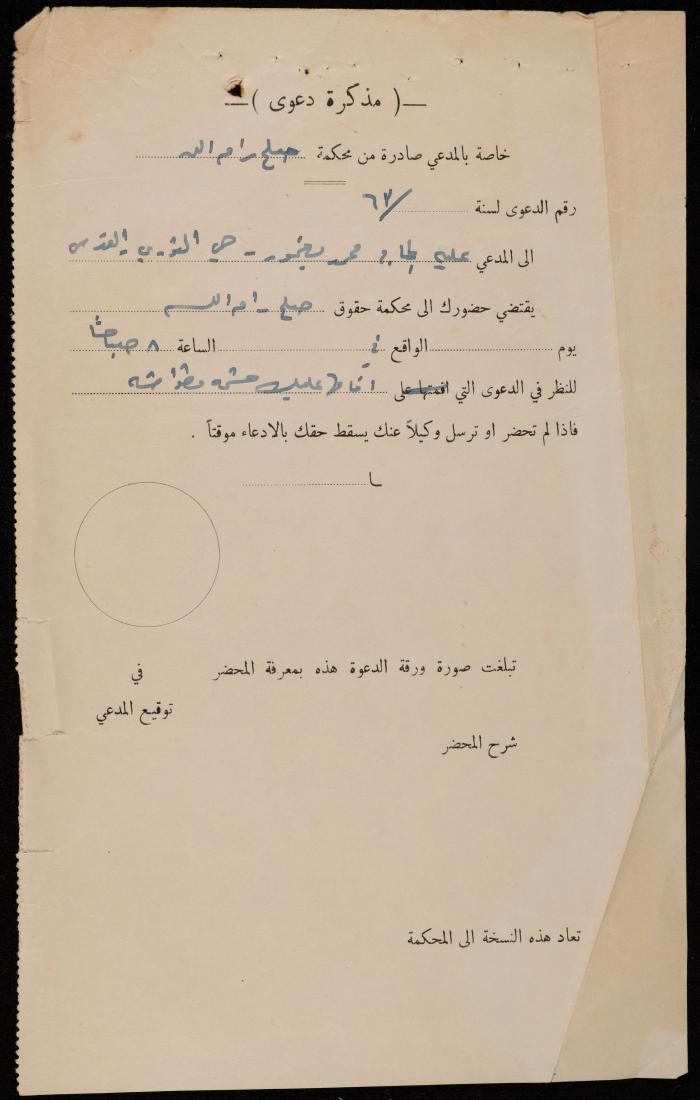 —( مذكرة دعوى )—
خاصة بالمدعي صادرة من محكمة صلح رام الله
رقم الدعوى لسنة /٦٣
الى المدعي محمد - حي الثوري القدس
يقتضي حضورك الى محكمة حقوق صلح رام الله
يوم الواقع في الساعة ٨ صباحاً
للنظر في الدعوى التي اقمتها على اقامها عليك
فاذا لم تحضر او ترسل وكيلاً عنك يسقط حقك بالادعاء موقتاً .
تبلغت صورة ورقة الدعوة هذه بمعرفة المحضر في
توقيع المدعي
شرح المحضر
تعاد هذه النسخة الى المحكمة